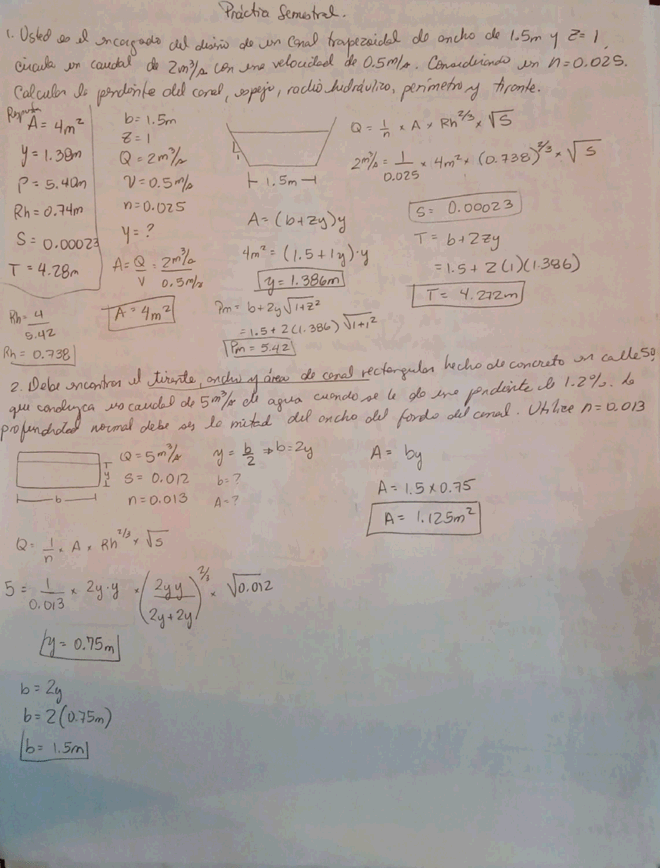 Práctica Semestral.
1. Usted es el encargado del diseño de un canal trapezoidal de ancho de 1.5m y Z=1,
circula un caudal de 2m³/s con una velocidad de 0.5m/s. Considerando un n=0.025.
Calcular la pendiente del canal, espejo, radio hidráulico, perímetro y tirante.
Respuesta
A = 4m²
y = 1.38m
P = 5.42m
Rh = 0.74m
S = 0.00023
T = 4.28m
Rh = 4/5.42
Rh = 0.738
b = 1.5m
Z = 1
Q = 2m³/s
V = 0.5m/s
n = 0.025
y = ?
A = Q/V = 2m³/s / 0.5m/s
A = 4m²
1.5m
A = (b+zy)y
4m² = (1.5+1y)·y
y = 1.386m
Pm = b+2y√1+z²
= 1.5+2(1.386)√1+1²
Pm = 5.42
Q = 1/n × A × Rh^2/3 × √S
2m³/s = 1/0.025 × 4m² × (0.738)^2/3 × √S
S = 0.00023
T = b+2zy
= 1.5+2(1)(1.386)
T = 4.272m
2. Debe encontrar el tirante, ancho y área de canal rectangular hecho de concreto en calle 50
que conduzca un caudal de 5m³/s de agua cuando se le da una pendiente de 1.2%. La
profundidad normal debe ser la mitad del ancho del fondo del canal. Utilize n=0.013
y
b
Q = 5m³/s
S = 0.012
n = 0.013
y = b/2 ⇒ b=2y
b = ?
A = ?
A = by
A = 1.5 × 0.75
A = 1.125m²
Q = 1/n × A × Rh^2/3 × √S
5 = 1/0.013 × 2y·y × (2y·y/2y+2y)^2/3 × √0.012
y = 0.75m
b = 2y
b = 2(0.75m)
b = 1.5m